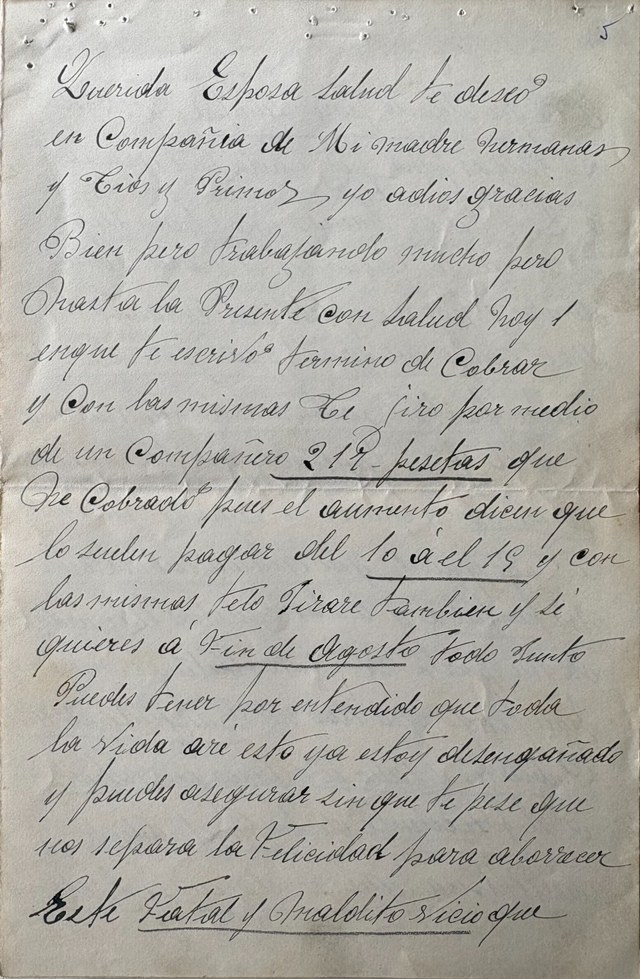 5
Querida Esposa salud te deseo
en Compañia de Mi madre hermanas
y Tios y Primos yo adios gracias
Bien pero trabajando mucho pero
hasta la Presente con salud hoy 1
enque te escrivo termino de Cobrar
y Con las mismas Te Jiro por medio
de un Compañero pesetas que
he Cobrado pues el aumento dicen que
lo suelen pagar del 10 á el 15 y con
las mismas telo Jirare tambien y si
quieres á Fin de Agosto todo Junto
Puedes tener por entendido que toda
la vida aré esto ya estoy desengañado
y puedes asegurar sin que te pese que
nos separa la Felicidad para aborrecer
Este Fatal y Maldito vicio que